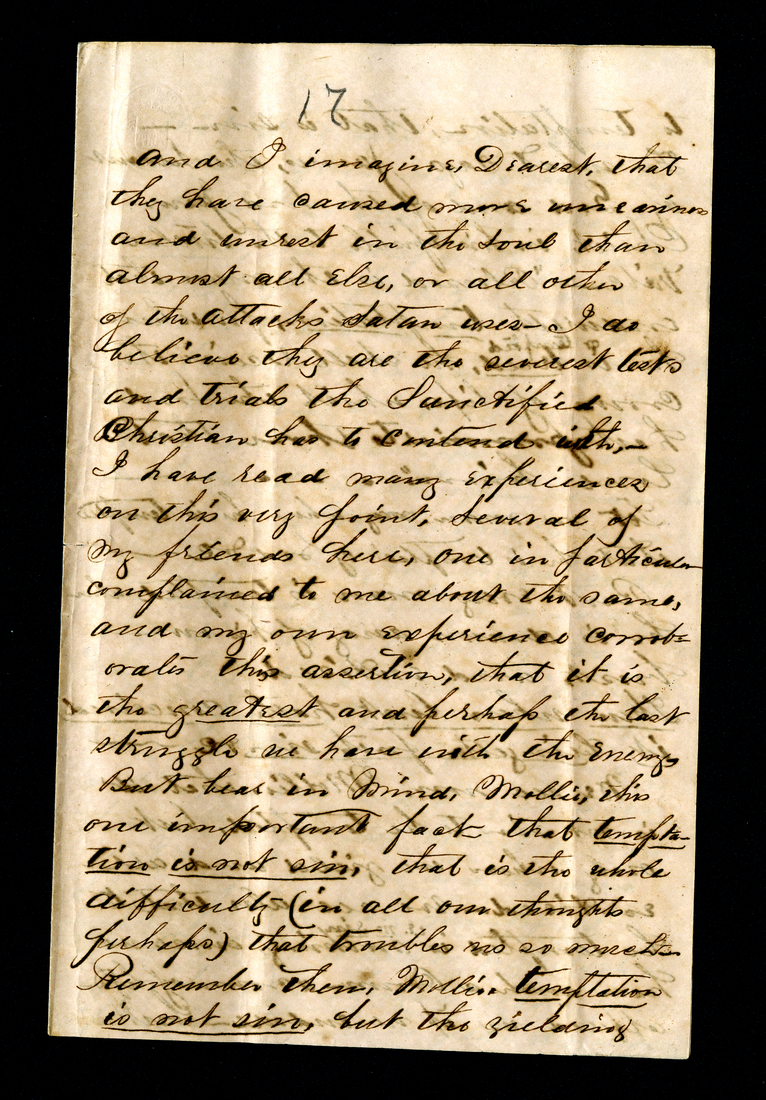 17
And I imagine, Dearest, that
they have caused more uneasiness
and unrest in the soul than
almost all Else, or all other
of the attacks Satan uses— I do
believe they are the severest tests
and trials the Sanctified
Christian has to contend with,—
I have read many Experiences
on this very point, Several of
my friends here, one in particular
complained to me about the same,
and my own experience corrob=
orates this assertion, that it is
the greatest and perhaps the last
struggle we have with the Enemy
But bear in Mind, Mollie, this
one important fact that tempta-
tion is not sin, that is the whole
difficulty (in all our thoughts
perhaps) that troubles us so much—
Remember then, Mollie, temptation
is not sin, but the yielding